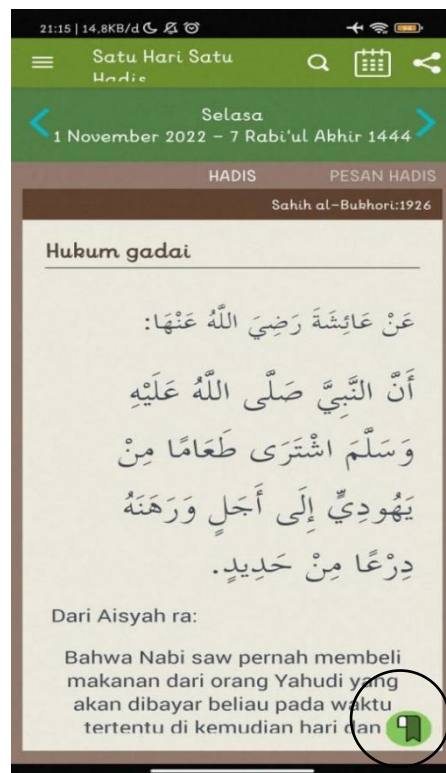 21:15 | 14,8KB/d
Satu Hari Satu
Hadis
Selasa
1 November 2022 - 7 Rabi'ul Akhir 1444
HADIS PESAN HADIS
Sahih al-Bukhori:1926
Hukum gadai
عَنْ عَائِشَةَ رَضِيَ اللَّهُ عَنْهَا:
أَنَّ النَّبِيَّ صَلَّى اللَّهُ عَلَيْهِ
وَسَلَّمَ اشْتَرَى طَعَامًا مِنْ
يَهُودِيٍّ إِلَى أَجَلٍ وَرَهَنَهُ
دِرْعًا مِنْ حَدِيدٍ.
Dari Aisyah ra:
Bahwa Nabi saw pernah membeli
makanan dari orang Yahudi yang
akan dibayar beliau pada waktu
tertentu di kemudian hari dan